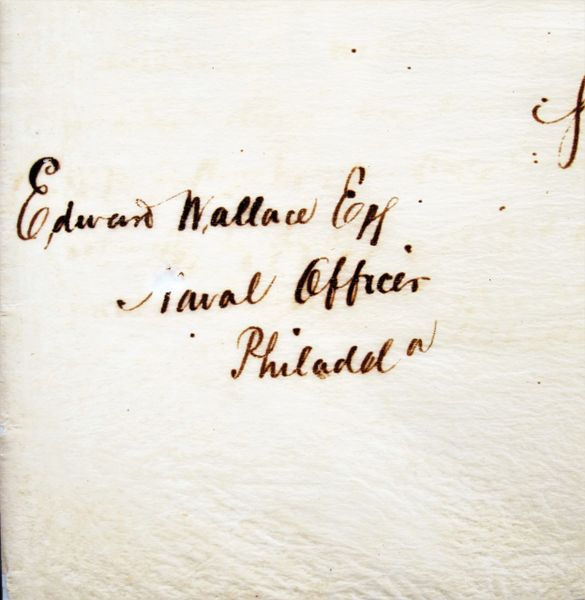 Edward Wallace Esq
Naval Officer
Philadda